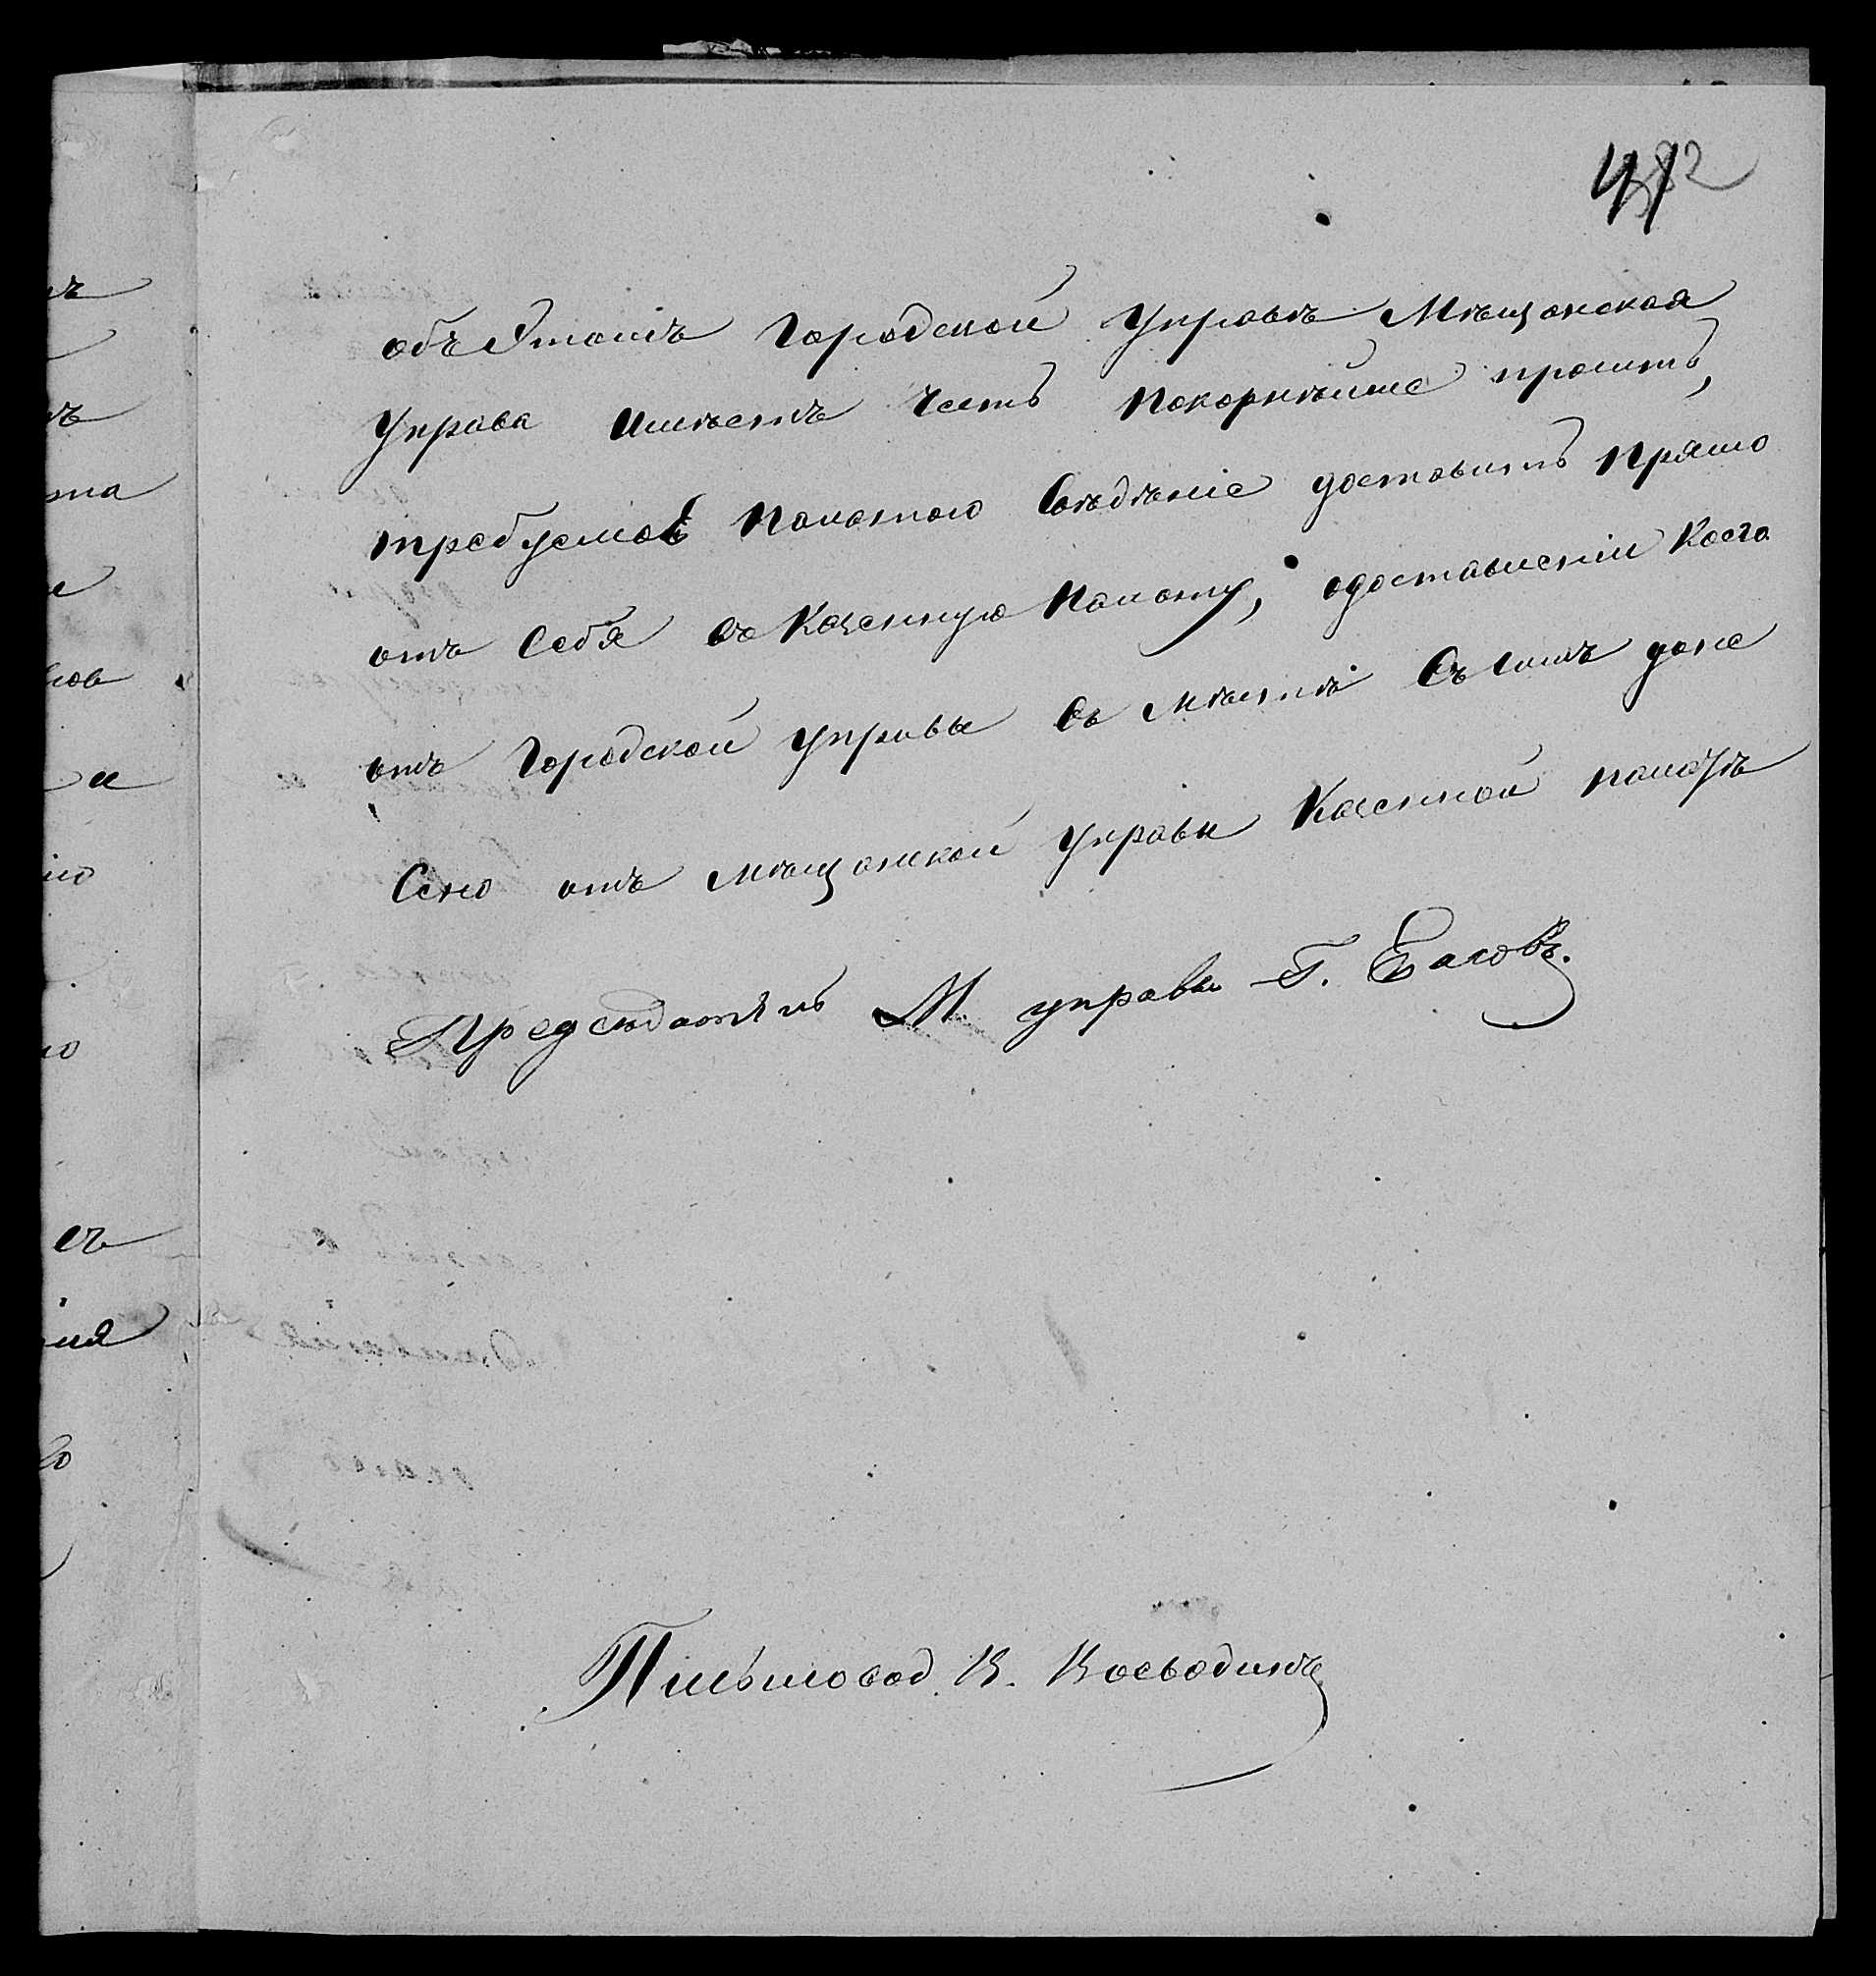 объ Этомъ Городской Управѣ Мѣщанская
Управа имѣетъ Честь покорнѣйше просить,
требуемое палатою Свѣдѣніе доставить прямо
отъ Себя въ Казенную Палату, о доставленіи Коего
отъ Городской управы въ мѣстѣ Съ симъ доне
Сено отъ мѣщанской Управы Казенной палатѣ
Предсѣдатель М. управы Г.
Письмовод. В. Воеводинъ